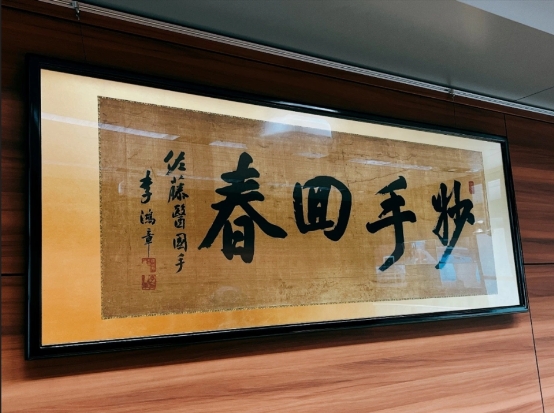 妙手回春
佐藤醫國手
李鴻章